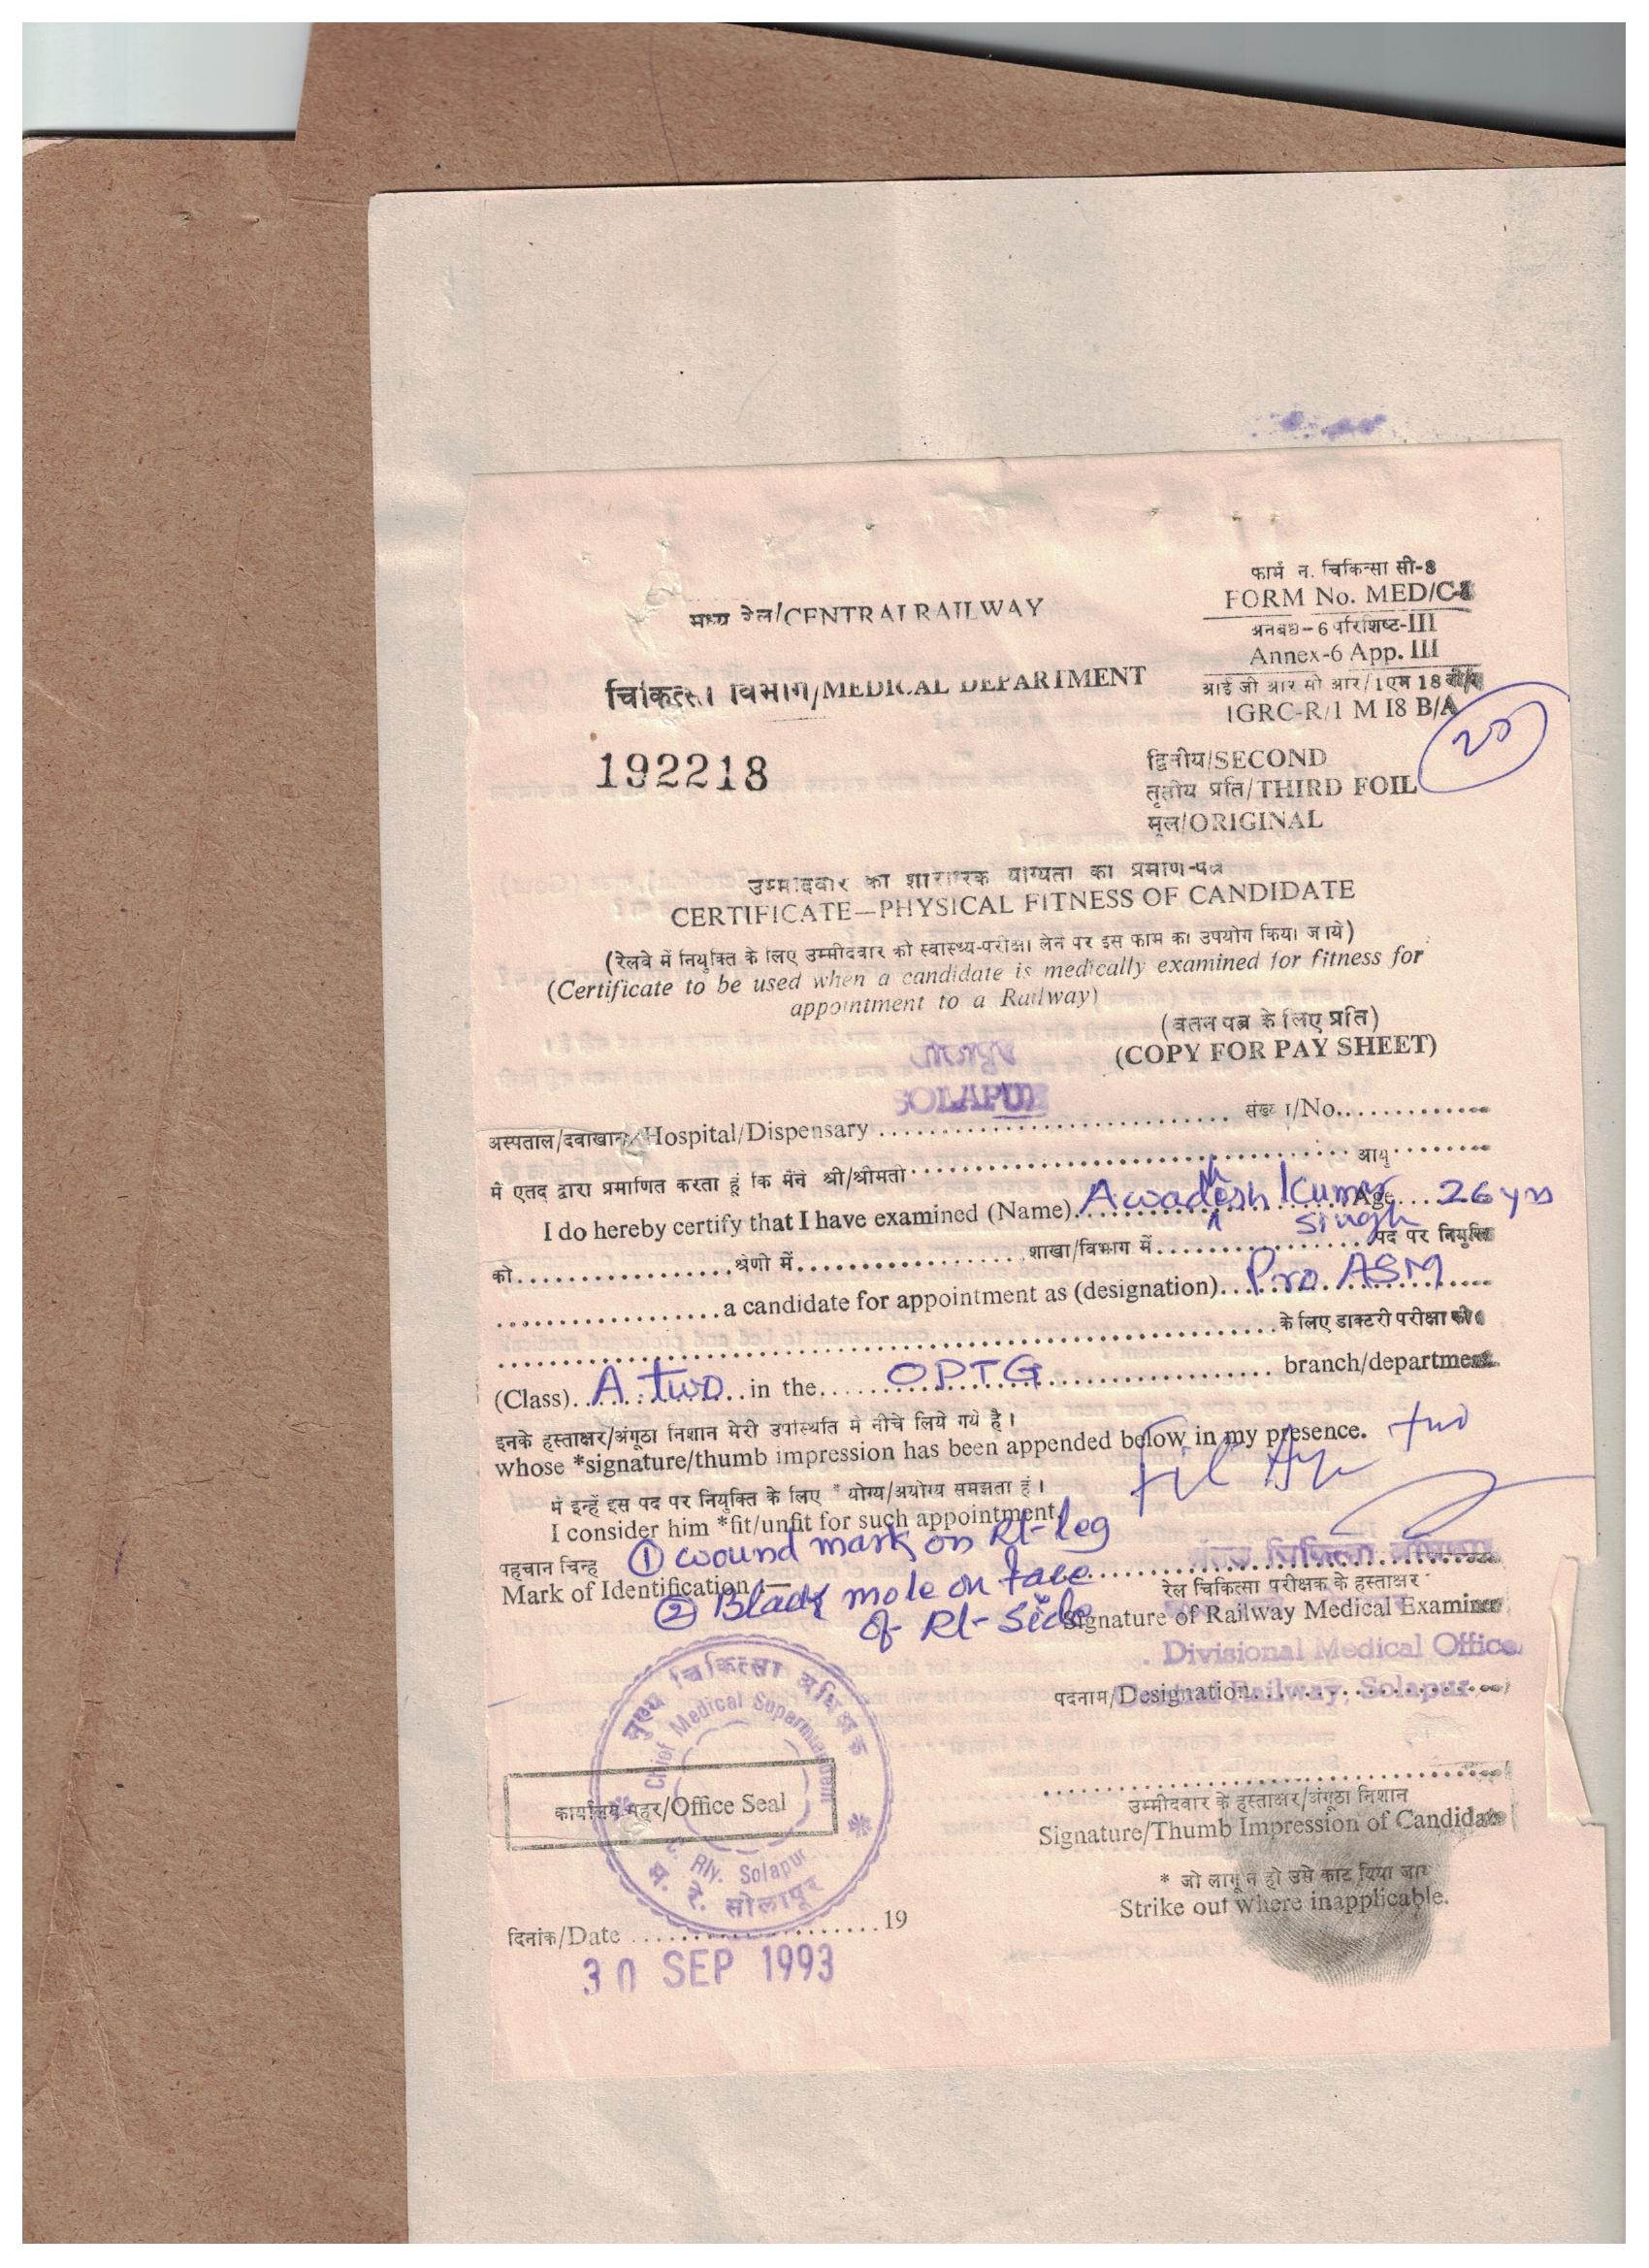 फार्म न. चिकित्सा सी-8
FORM No. MED/C-8
मध्य रेल/CENTRAL RAILWAY
अनबंध-6 परिशिष्ट-III
Annex-6 App. III
चिकित्सा विभाग/MEDICAL DEPARTMENT
आई जी आर सी आर/1 एम 18
IGRC-R/1 M I8 B/A
20
192218
द्वितीय/SECOND
तृतीय प्रति/THIRD FOIL
मूल/ORIGINAL
उम्मीदवार का शारीरिक योग्यता का प्रमाण-पत्र
CERTIFICATE—PHYSICAL FITNESS OF CANDIDATE
(रेलवे में नियुक्ति के लिए उम्मीदवार की स्वास्थ्य-परीक्षा लेने पर इस फार्म का उपयोग किया जाये)
(Certificate to be used when a candidate is medically examined for fitness for
appointment to a Railway)
(वेतन पत्र के लिए प्रति)
(COPY FOR PAY SHEET)
SOLAPUR
अस्पताल/दवाखाना/Hospital/Dispensary ........ संख्या/No.........
मैं एतद द्वारा प्रमाणित करता हूं कि मैंने श्री/श्रीमती ........ आयु ........
I do hereby certify that I have examined (Name) Awadhesh Kumar Singh Age... 26 yrs
को........श्रेणी में........शाखा/विभाग में........पद पर नियुक्ति
........a candidate for appointment as (designation) Pro. ASM
........के लिए डाक्टरी परीक्षा की।
(Class) A two in the OPTG branch/department
इनके हस्ताक्षर/अंगूठा निशान मेरी उपस्थिति में नीचे लिये गये है।
whose *signature/thumb impression has been appended below in my presence.
two
मैं इन्हें इस पद पर नियुक्ति के लिए * योग्य/अयोग्य समझता हूं।
I consider him *fit/unfit for such appointment.
पहचान चिन्ह ① wound mark on Rt-leg
Mark of Identification :—
② Black mole on face
of Rt-side
रेल चिकित्सा परीक्षक के हस्ताक्षर
Signature of Railway Medical Examiner
Divisional Medical Office
पदनाम/Designation Railway, Solapur
मुख्य चिकित्सा अधिक्षक
Chief Medical Superintendent
C. Rly. Solapur
म. रे. सोलापूर
कार्यालय मुहर/Office Seal
उम्मीदवार के हस्ताक्षर/अंगूठा निशान
Signature/Thumb Impression of Candidate
* जो लागू न हो उसे काट दिया जाए
Strike out where inapplicable.
दिनांक/Date ........19
30 SEP 1993